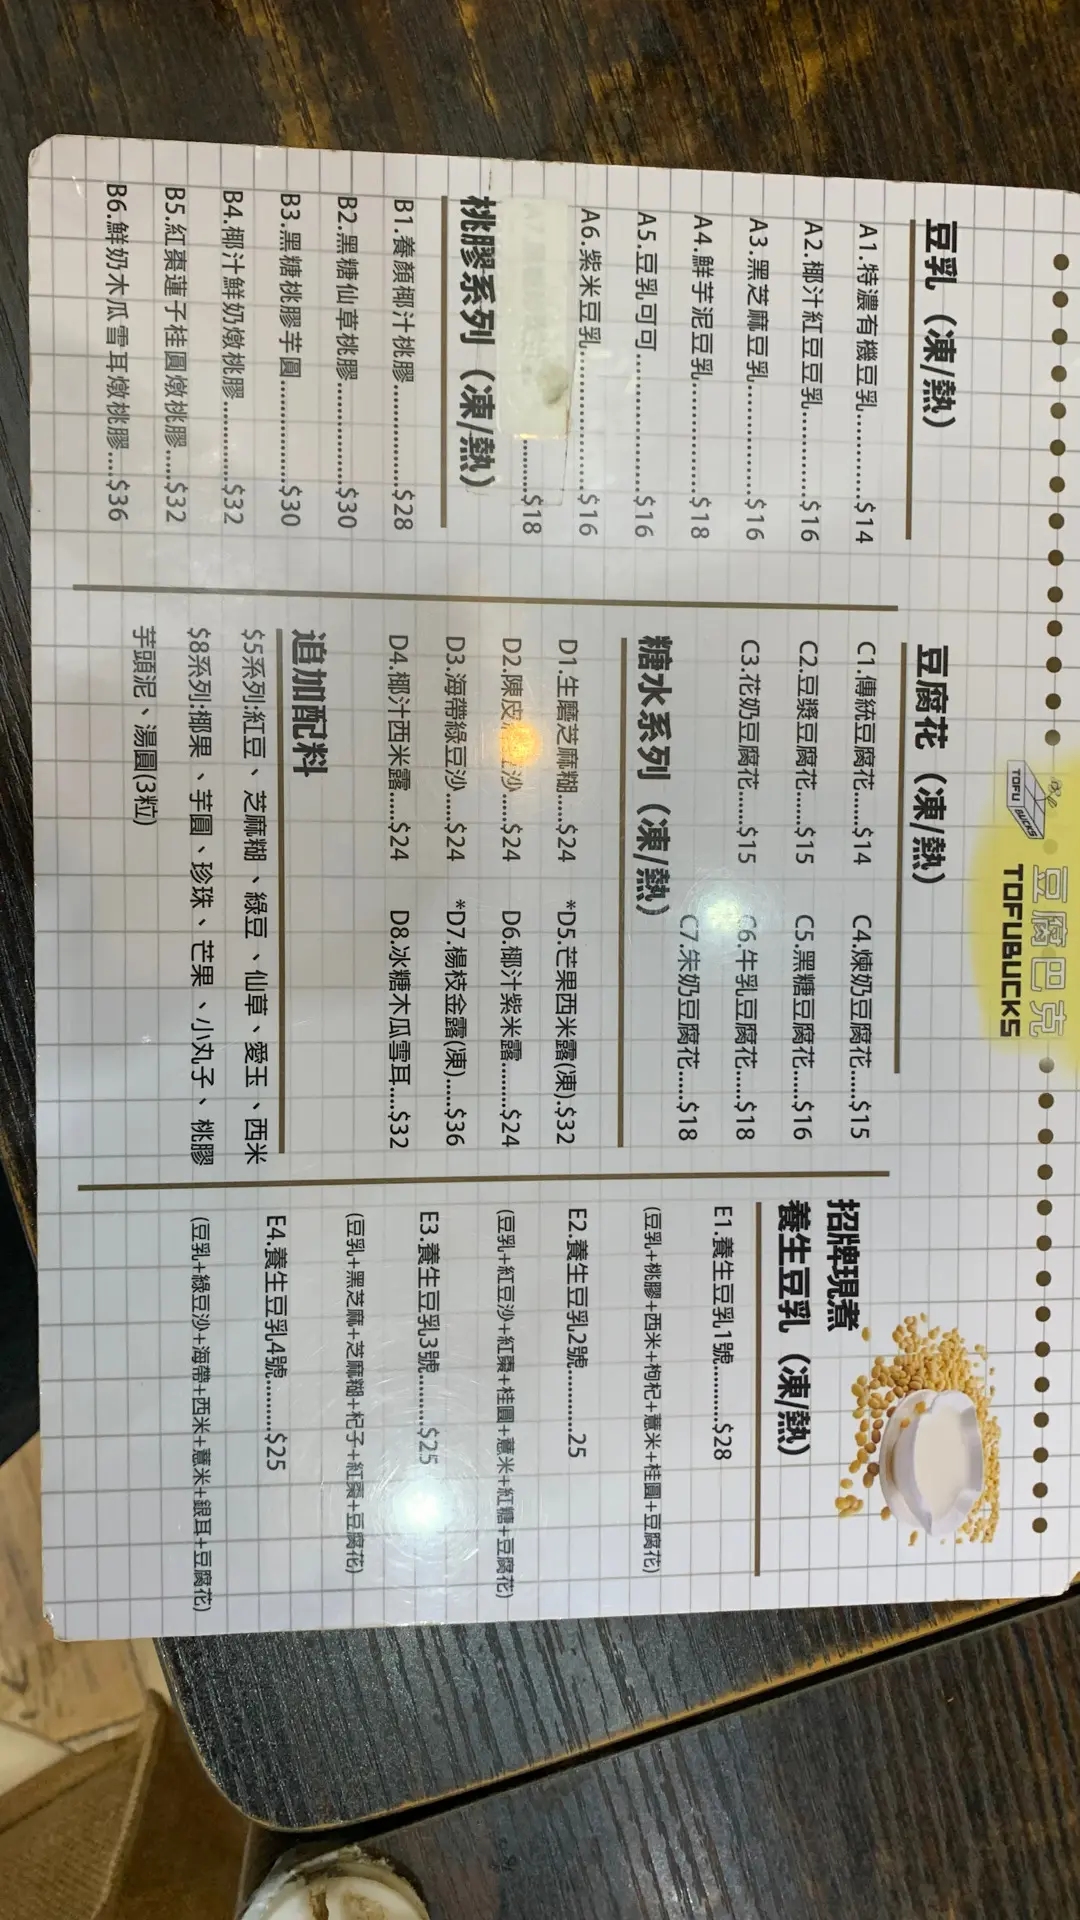 豆腐巴克
TOFUBUCKS
TOFU
BUCKS
豆乳（凍/熱）
A1.特濃有機豆乳..........$14
A2.椰汁紅豆豆乳..........$16
A3.黑芝麻豆乳.............$16
A4.鮮芋泥豆乳.............$18
A5.豆乳可可................$16
A6.紫米豆乳................$16
........$18
桃膠系列（凍/熱）
B1.養顏椰汁桃膠............$28
B2.黑糖仙草桃膠............$30
B3.黑糖桃膠芋圓............$30
B4.椰汁鮮奶燉桃膠..........$32
B5.紅棗蓮子桂圓燉桃膠.....$32
B6.鮮奶木瓜雪耳燉桃膠....$36
豆腐花（凍/熱）
C1.傳統豆腐花......$14
C2.豆漿豆腐花......$15
C3.花奶豆腐花......$15
C4.煉奶豆腐花.....$15
C5.黑糖豆腐花.....$16
C6.牛乳豆腐花.....$18
C7.朱奶豆腐花.....$18
糖水系列（凍/熱）
D1.生磨芝麻糊.....$24
D2.陳皮 沙......$24
D3.海帶綠豆沙......$24
D4.椰汁西米露.....$24
*D5.芒果西米露(凍).$32
D6.椰汁紫米露........$24
*D7.楊枝金露(凍).....$36
D8.冰糖木瓜雪耳....$32
追加配料
$5系列:紅豆、芝麻糊、綠豆、仙草、愛玉、西米
$8系列:椰果、芋圓、珍珠、芒果、小丸子、桃膠
芋頭泥、湯圓(3粒)
招牌現煮
養生豆乳（凍/熱）
E1.養生豆乳1號..........$28
(豆乳+桃膠+西米+枸杞+薏米+桂圓+豆腐花)
E2.養生豆乳2號...........25
(豆乳+紅豆沙+紅棗+桂圓+薏米+紅糖+豆腐花)
E3.養生豆乳3號.........$25
(豆乳+黑芝麻+芝麻糊+杞子+紅棗+豆腐花)
E4.養生豆乳4號.........$25
(豆乳+綠豆沙+海帶+西米+薏米+銀耳+豆腐花)